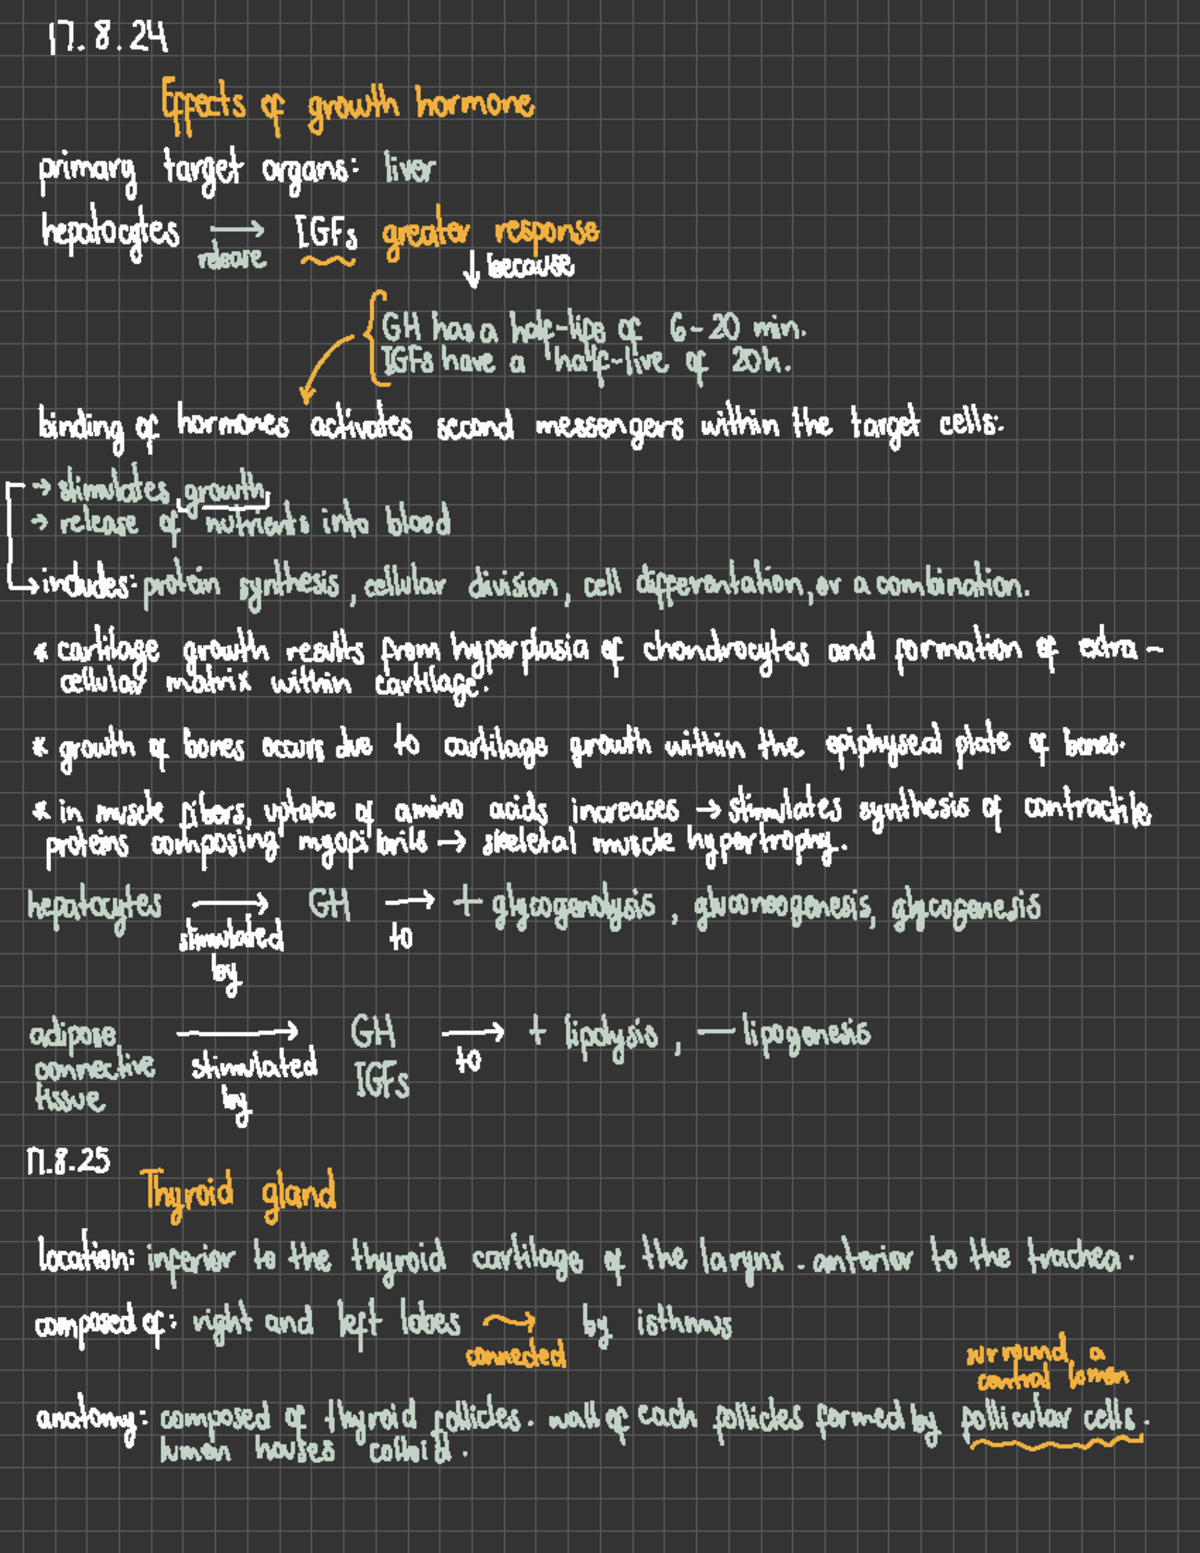 17.8.24
Effects of growth hormone
primary target organs: liver
hepatocytes → release IGFs greater response
↓ because
GH has a half-life of 6-20 min.
IGFs have a half-live of 20h.
binding of hormones activates second messengers within the target cells:
→ stimulates growth
→ release of nutrients into blood
→ includes: protein synthesis, cellular division, cell differentation, or a combination.
* cartilage growth results from hyperplasia of chondrocytes and formation of extra-
cellular matrix within cartilage.
* growth of bones occurs due to cartilage growth within the epiphyseal plate of bones.
* in muscle fibers, uptake of amino acids increases → stimulates synthesis of contractile
proteins composing myofibrils → skeletal muscle hypertrophy.
hepatocytes → GH → + glycogenolysis, gluconeogenesis, glycogenesis
stimulated to
by
adipose → GH → + lipolysis, — lipogenesis
connective stimulated IGFs to
tissue by
17.8.25
Thyroid gland
location: inferior to the thyroid cartilage of the larynx. anterior to the trachea.
composed of: right and left lobes → by isthmus
connected
surround a
central lumen
anatomy: composed of thyroid follicles. wall of each follicles formed by follicular cells.
lumen houses colloid.